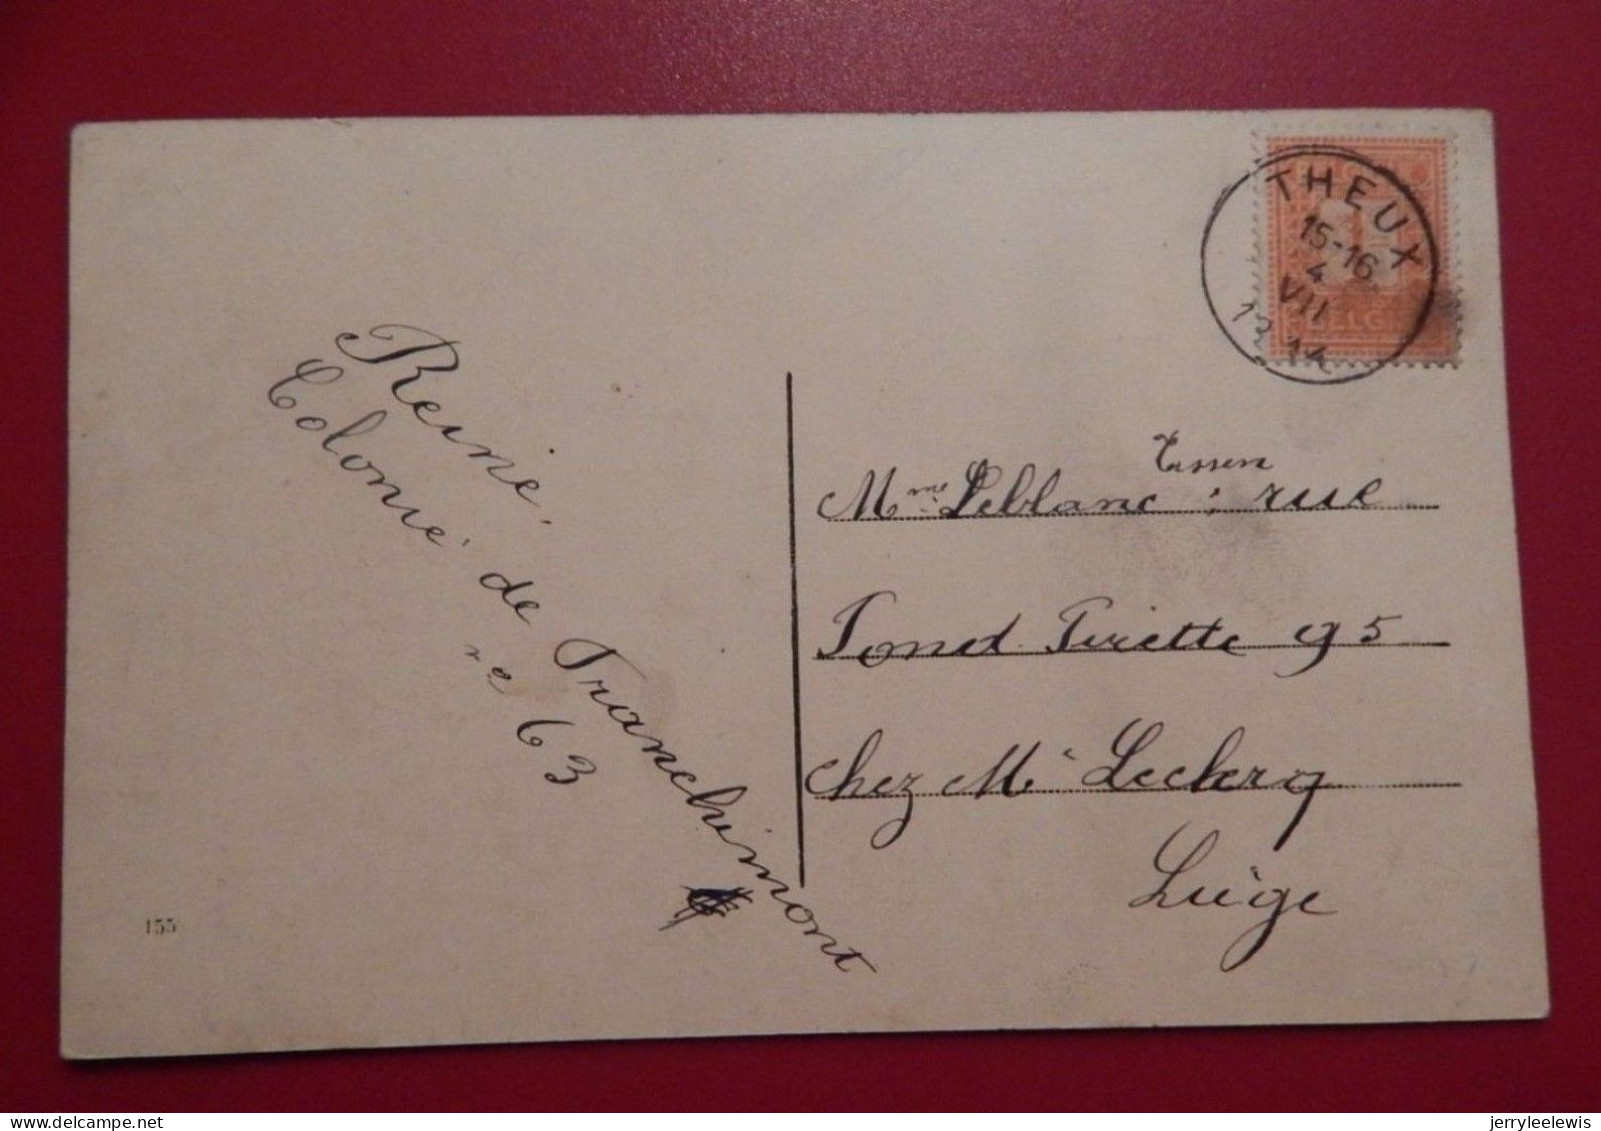 THEUX
15-16
4
VII
14
BELGI
Reine.
Colonie de Franchimont
nº 63
155
Tassen
Mme Leblanc : rue
Fond Pirette 95
chez Mr Leclercq
Liège
delcampe.net
jerryleelewis